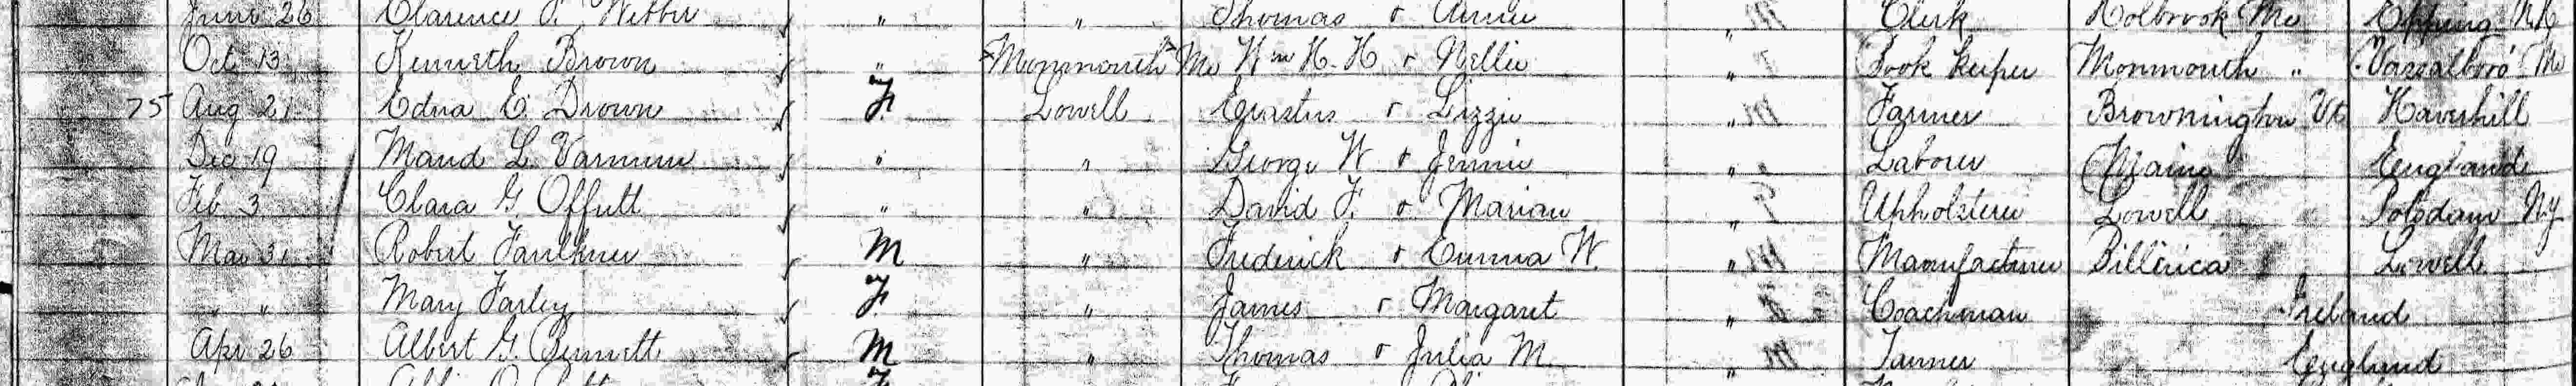 June 26 Clarence F. Webber " " Thomas & Annie " Clerk Holbrook Me Epping N.H.
Oct 13 Kenneth Brown " Monmouth Me Wm H. H & Nellie " Book keeper Monmouth " Vassalboro' Me
75 Aug 21 Edna E. Drown F. Lowell Erastus & Lizzie " Farmer Brownington Vt Haverhill
Dec 19 Maud L. Varnum " " George W & Jennie " Laborer Maine England
Feb 3 Clara G. Offutt " " David F. & Marian " Upholsterer Lowell Potsdam N.Y.
Mar 31 Robert Faulkner M " Frederick & Emma W. " Manufacturer Billerica Lowell
" " Mary Farley F. " James & Margaret " Coachman Ireland
Apr 26 Albert G. Bennett M " Thomas & Julia M. " Tanner England